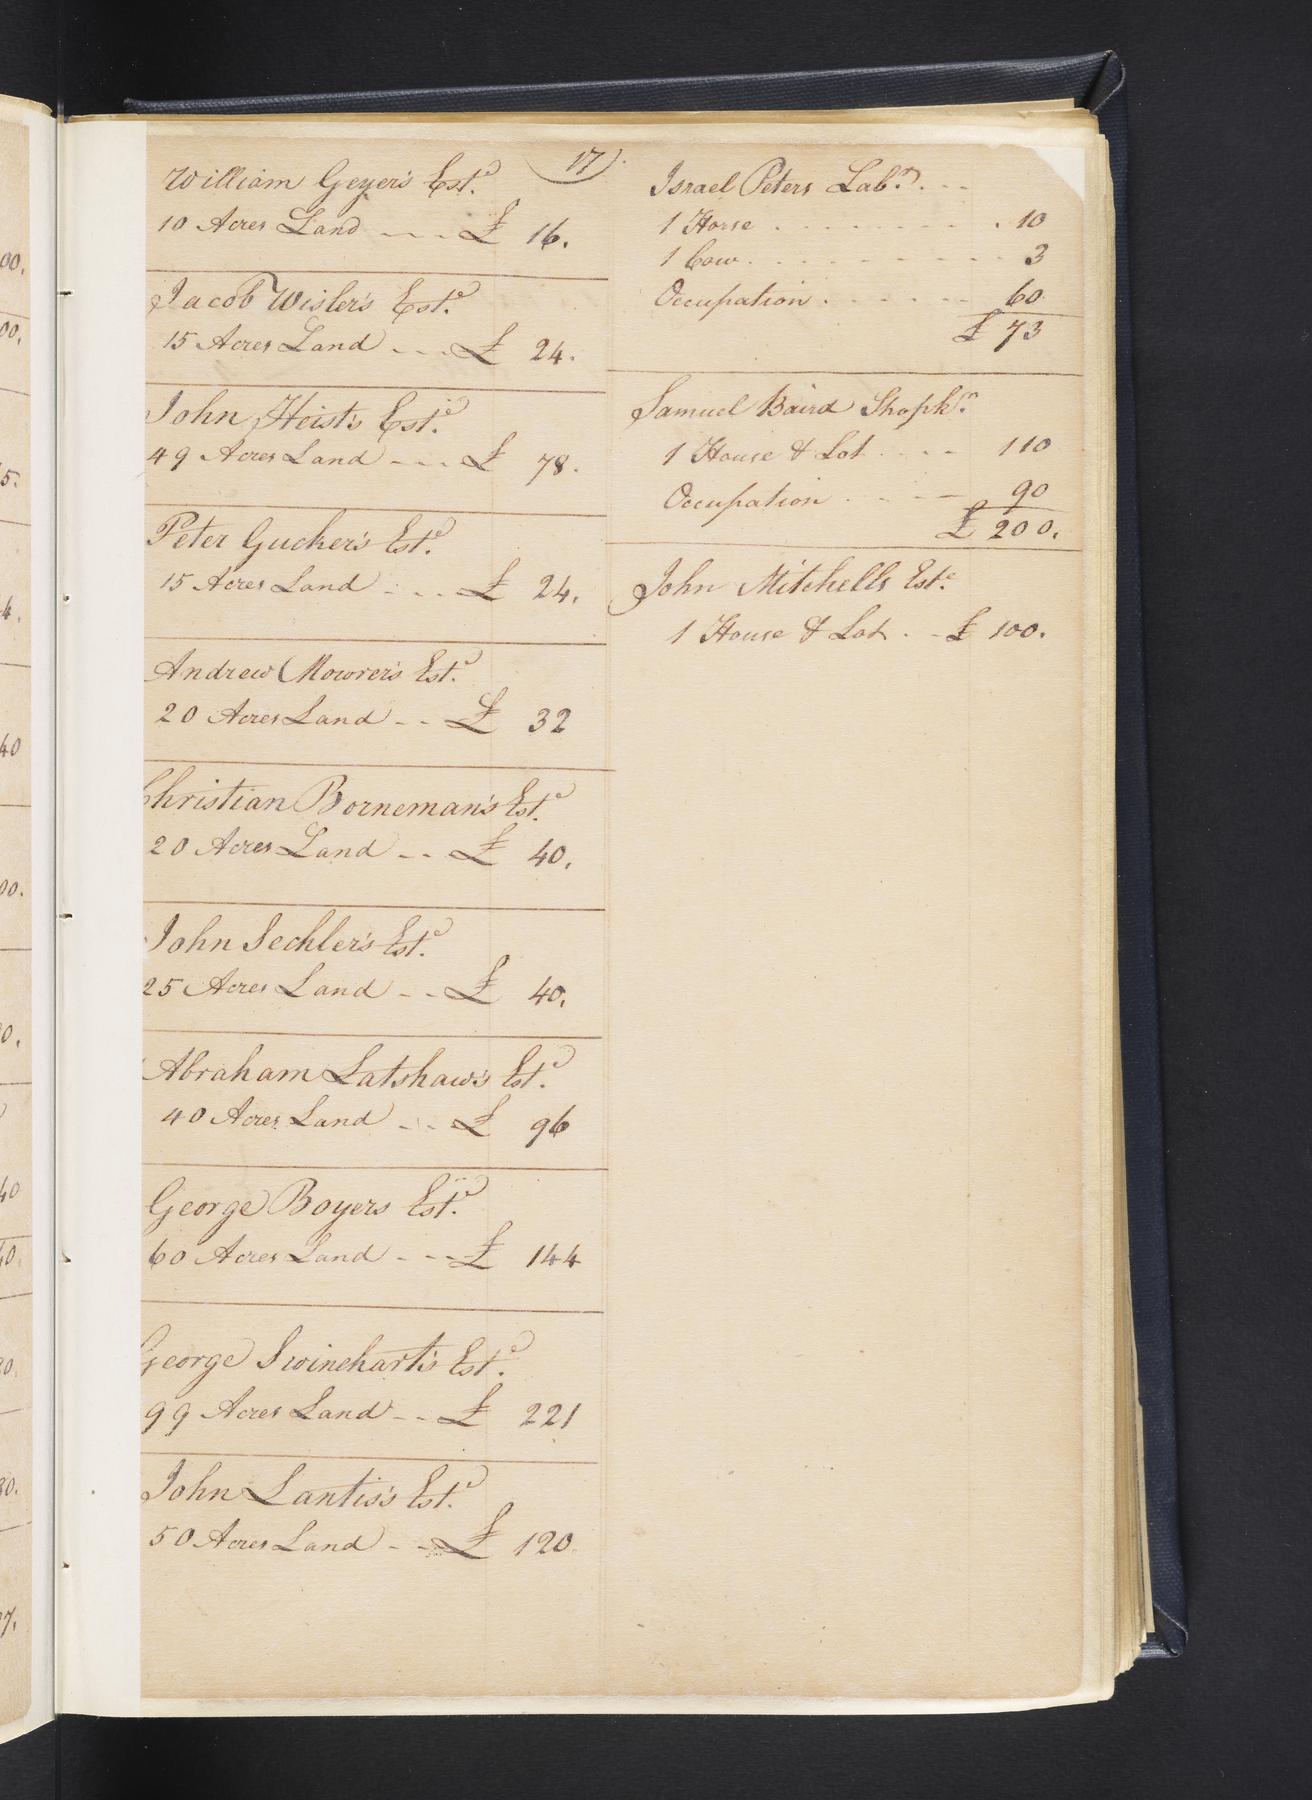 17
William Geyer's Est.e
10 Acres Land - - - £ 16.
Jacob Wisler's Est.e
15 Acres Land - - - £ 24.
John Heist's Est.e
49 Acres Land - - - £ 78.
Peter Gucker's Est.e
15 Acres Land - - - £ 24.
Andrew Mowrer's Est.e
20 Acres Land - - £ 32
Christian Borneman's Est.e
20 Acres Land - - £ 40.
John Sechler's Est.e
25 Acres Land - - £ 40.
Abraham Latshaw's Est.e
40 Acres Land - - £ 96
George Boyers Est.e
60 Acres Land - - - £ 144
George Swinehart's Est.e
99 Acres Land - - £ 221
John Lantis's Est.e
50 Acres Land - - £ 120
Israel Peters Lab.r - -
1 Horse . . . . . . . . 10
1 Cow . . . . . . . . . 3
Occupation . . . . . . 60
£ 73
Samuel Baird Shopk.r
1 House & Lot . . - - 110
Occupation . . - - 90
£ 200.
John Mitchells Est.e
1 House & Lot . - £ 100.